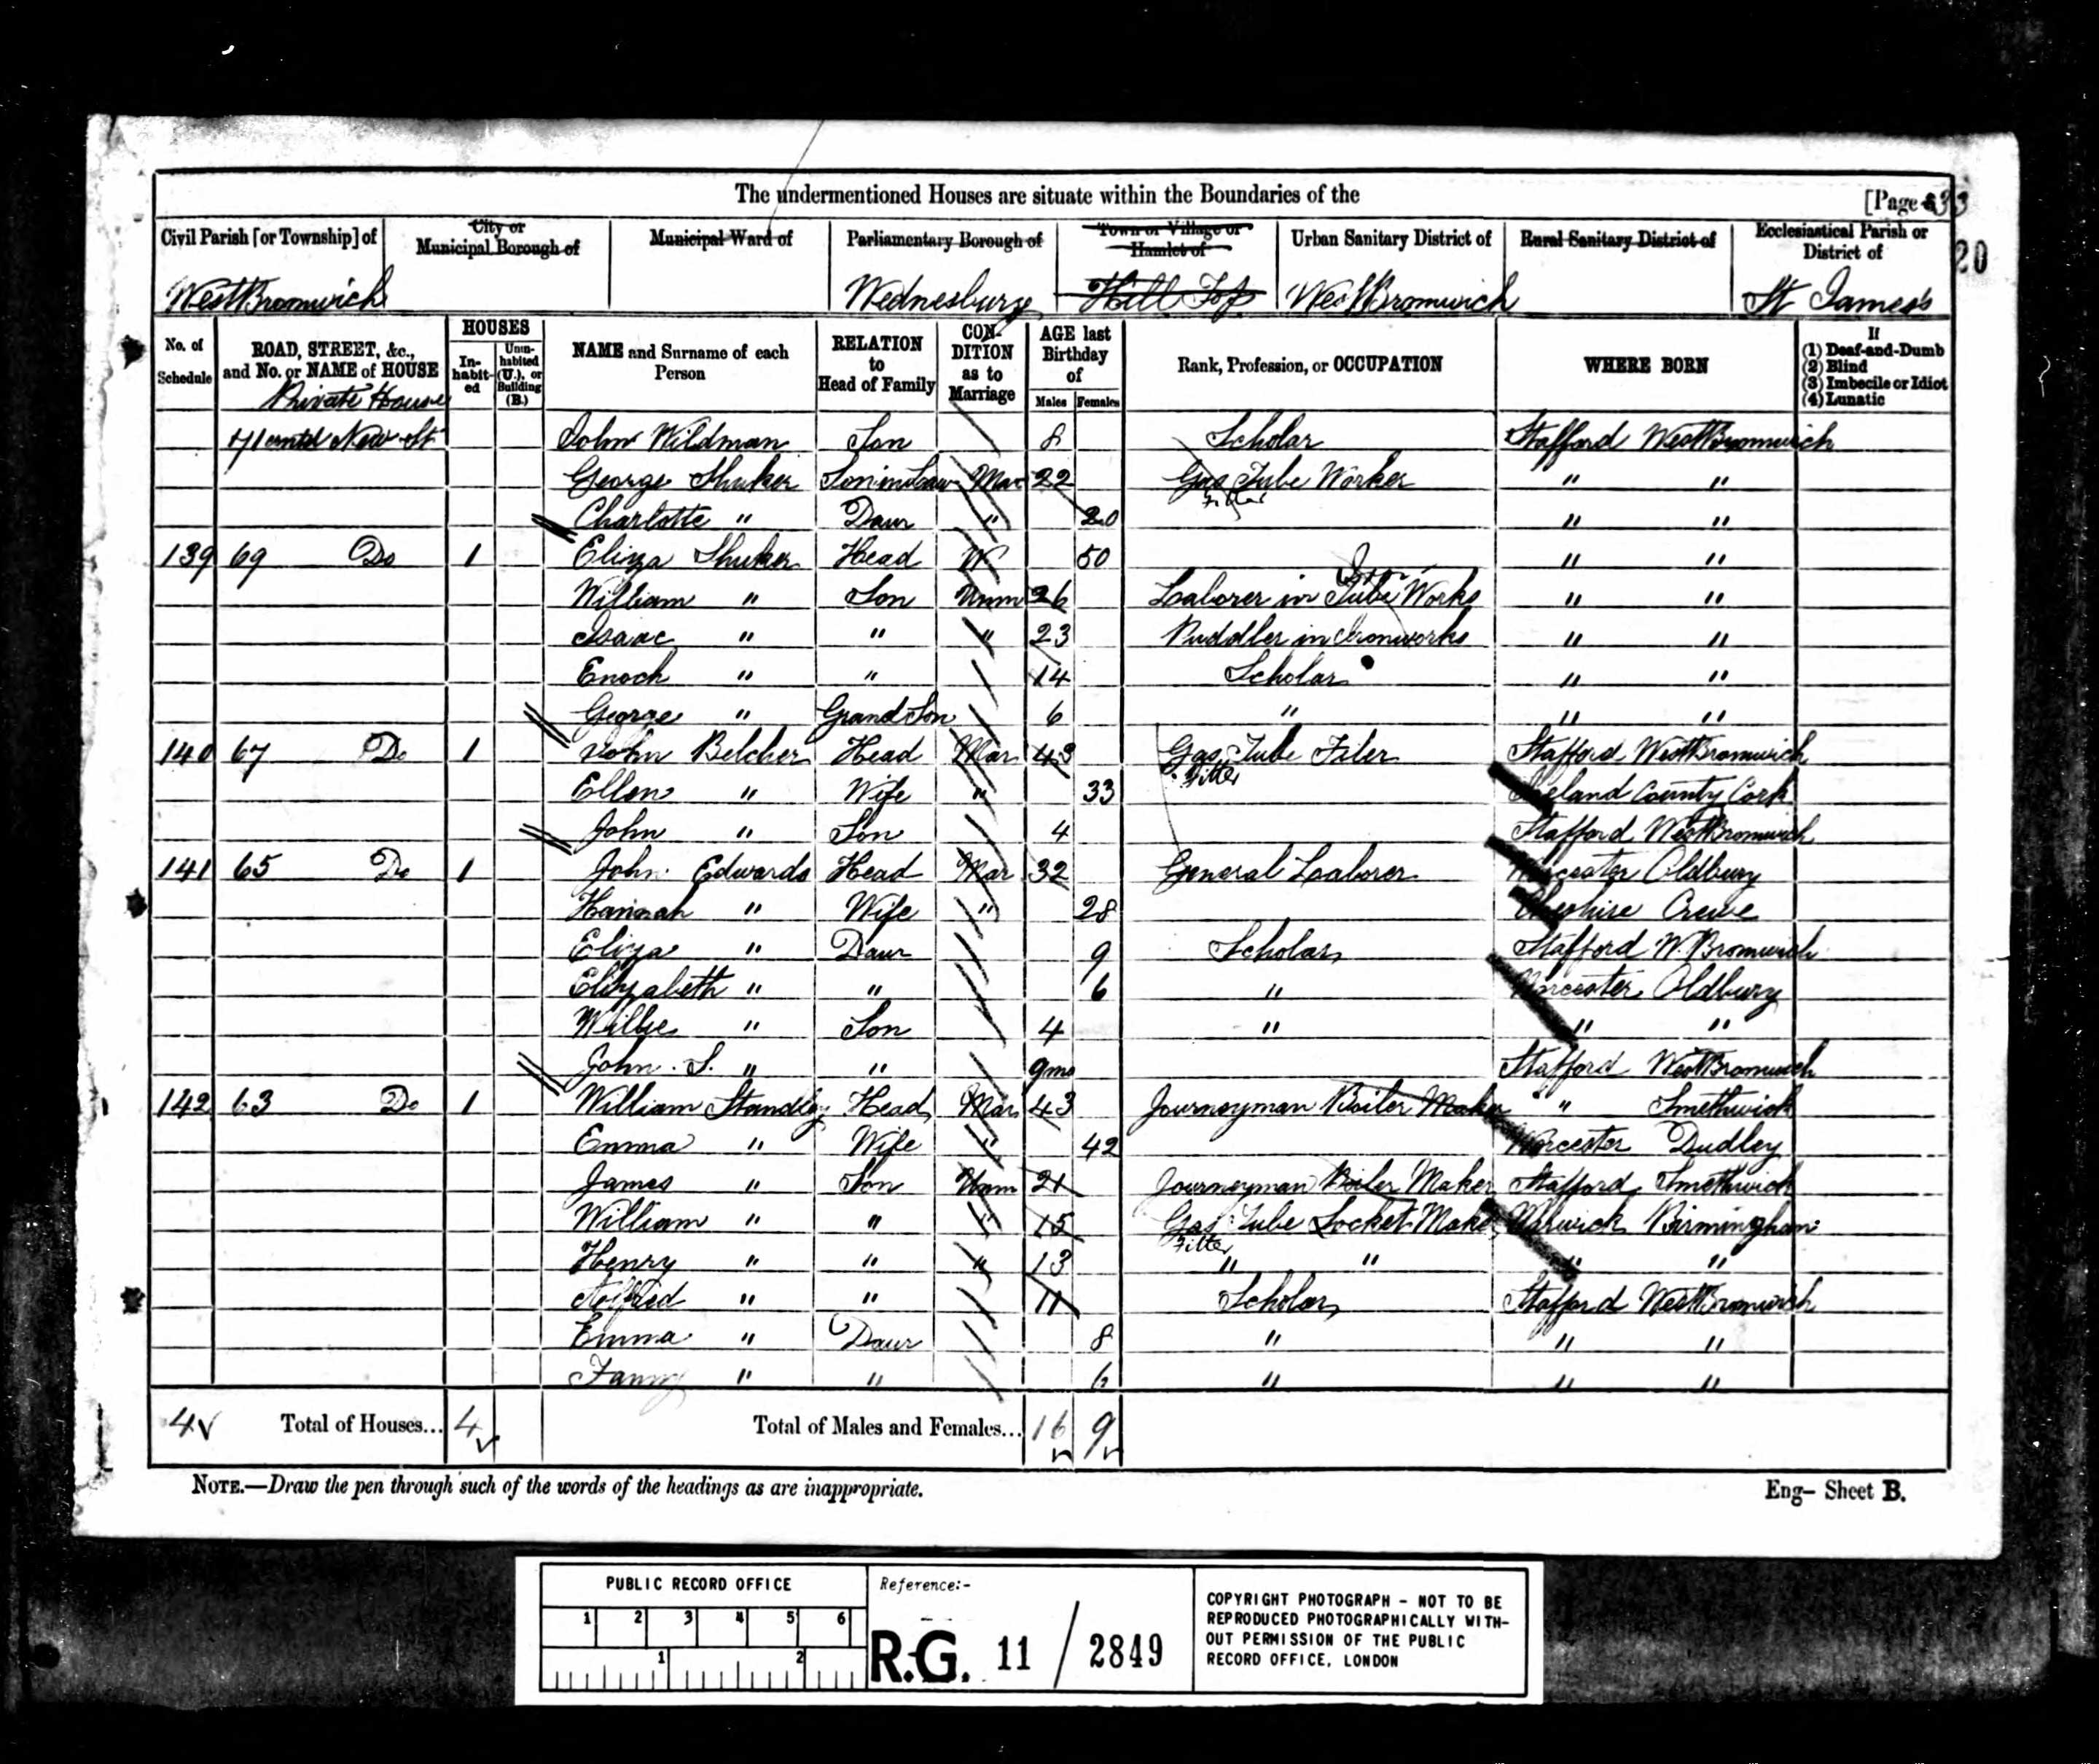 The undermentioned Houses are situate within the Boundaries of the [Page 33
Civil Parish [or Township] of City or Municipal Borough of Municipal Ward of Parliamentary Borough of Town or Village or Hamlet of Urban Sanitary District of Rural Sanitary District of Ecclesiastical Parish or District of 20
West Bromwich Wednesbury Hill Top West Bromwich St James's
No. of Schedule ROAD, STREET, &c., and No. or NAME of HOUSE HOUSES Inhabited Uninhabited (U.), or Building (B.) NAME and Surname of each Person RELATION to Head of Family CONDITION as to Marriage AGE last Birthday of Males Females Rank, Profession, or OCCUPATION WHERE BORN If (1) Deaf-and-Dumb (2) Blind (3) Imbecile or Idiot (4) Lunatic
Private House
71 contd New St John Wildman Son 8 Scholar Stafford West Bromwich
George Shuker Son in Law Mar 22 Gas Tube Worker " "
Fitter
Charlotte " Daur " 20 " "
139 69 Do 1 Eliza Shuker Head W 50 " "
Iron
William " Son Unm 26 Laborer in Tube Works " "
Isaac " " " 23 Puddler in Ironworks " "
Enoch " " 14 Scholar " "
George " Grand Son 6 " " "
140 67 Do 1 John Belcher Head Mar 43 Gas Tube Filer Stafford West Bromwich
Fitter
Ellen " Wife " 33 Ireland County Cork
John " Son 4 Stafford West Bromwich
141 65 Do 1 John Edwards Head Mar 32 General Laborer Worcester Oldbury
Hannah " Wife " 28 Cheshire Crewe
Eliza " Daur 9 Scholar Stafford W. Bromwich
Elizabeth " " 6 " Worcester Oldbury
Willie " Son 4 " " "
John. S. " " 9mo Stafford West Bromwich
142 63 Do 1 William Standley Head Mar 43 Journeyman Boiler Maker " Smethwick
Emma " Wife " 42 Worcester Dudley
James " Son Unm 21 Journeyman Boiler Maker Stafford Smethwick
William " " " 15 Gas Tube Socket Maker Warwick Birmingham
Fitter
Henry " " " 13 " " " "
Alfred " " 11 Scholar Stafford West Bromwich
Emma " Daur 8 " " "
Fanny " " 6 " " "
4 Total of Houses... 4 Total of Males and Females... 16 9
NOTE.—Draw the pen through such of the words of the headings as are inappropriate. Eng– Sheet B.
PUBLIC RECORD OFFICE
1 2 3 4 5 6
1 2
Reference:-
R.G. 11 / 2849
COPYRIGHT PHOTOGRAPH - NOT TO BE
REPRODUCED PHOTOGRAPHICALLY WITH-
OUT PERMISSION OF THE PUBLIC
RECORD OFFICE, LONDON